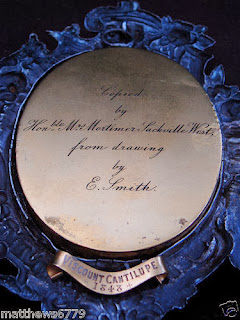 Copied
by
Hon.ble Mrs. Mortimer Sackville West,
from drawing
by
E. Smith.
VISCOUNT CANTILUPE
1848
matthews6779